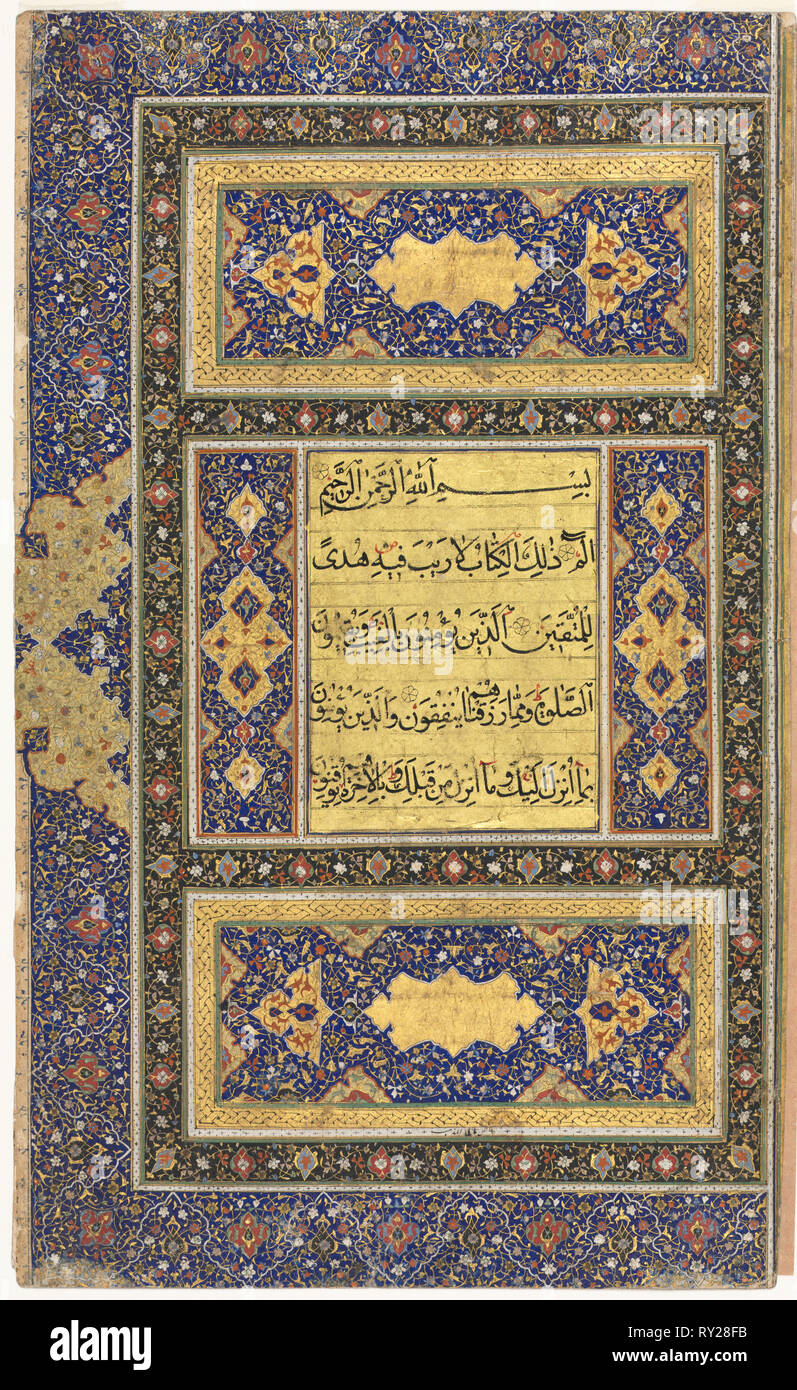 بِسْمِ ٱللَّهِ ٱلرَّحْمَٰنِ ٱلرَّحِيمِ
الٓمٓ ذَٰلِكَ ٱلْكِتَابُ لَا رَيْبَ فِيهِ هُدًى
لِلْمُتَّقِينَ ٱلَّذِينَ يُؤْمِنُونَ بِالْغَيْبِ وَيُقِيمُونَ
ٱلصَّلَوٰةَ وَمِمَّا رَزَقْنَاهُمْ يُنْفِقُونَ وَالَّذِينَ يُؤْمِنُونَ
بِمَآ أُنْزِلَ إِلَيْكَ وَمَآ أُنْزِلَ مِنْ قَبْلِكَ وَبِالْآخِرَةِ هُمْ يُوقِنُونَ
alamy
alamy
alamy
alamy
Image ID: RY28FB
www.alamy.com